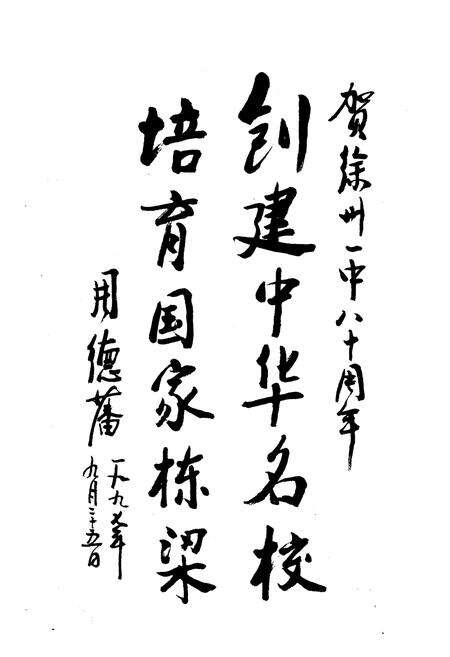 贺徐州一中八十周年
创建中华名校
培育国家栋梁
周德藩
一九九七年
九月二十五日